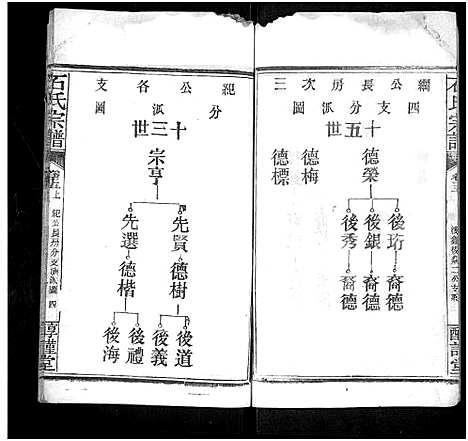 綱公長房次三
四支分派圖
十五世
德榮
德梅
德標
後珩
後銀
後秀
裔德
裔德
裔德
紀公各支
分派圖
十三世
宗亨
先賢
先選
德樹
德楷
後道
後義
後禮
後海
石氏宗譜
卷五上
紀公長房分支派圖
四
惇謹堂